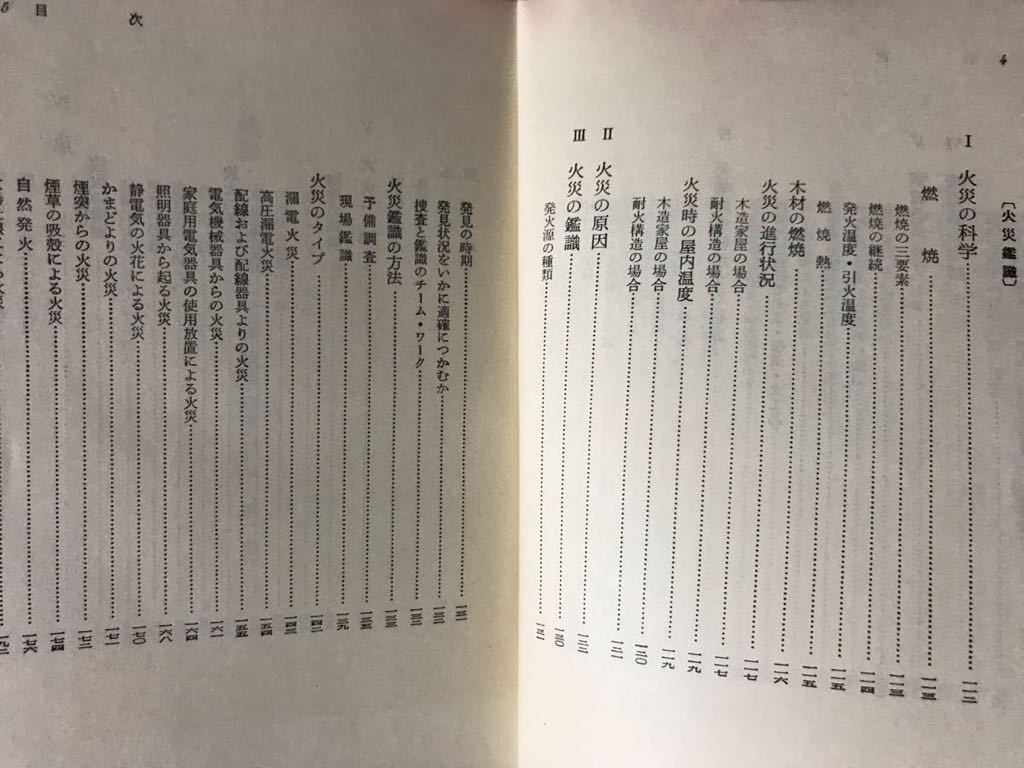 4
〔火災鑑識〕
I 火災の科学……一一二
燃焼……一一三
燃焼の三要素……一一三
燃焼の継続……一一四
発火温度・引火温度……一一五
燃焼熱……一一五
木材の燃焼……一一六
火災の進行状況……一一七
木造家屋の場合……一一七
耐火構造の場合……一一九
火災時の屋内温度……一一九
木造家屋の場合……一二〇
耐火構造の場合……一二一
II 火災の原因……一二二
III 火災の鑑識……一三〇
発火源の種類……一三一
5 目次
発見の時期……
発見状況をいかに適確につかむか……
捜査と鑑識のチーム・ワーク……
火災鑑識の方法……
予備調査……一三五
現場鑑識……一三九
火災のタイプ……一四二
漏電火災……一四三
高圧漏電火災……一五四
配線および配線器具よりの火災……一五五
電気機械器具からの火災……一六一
家庭用電気器具の使用放置による火災……一六四
照明器具から起る火災……一六八
静電気の火花による火災……一七〇
かまどよりの火災……一七一
煙突からの火災……一七三
煙草の吸殻による火災……一七四
自然発火……一七六